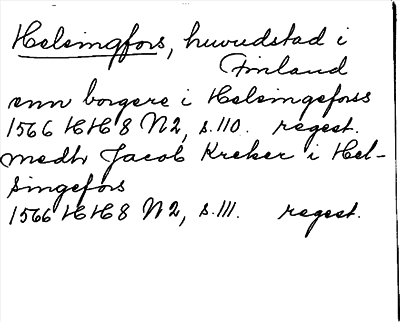 Helsingfors, huvudstad i
Finland
enn borgere i Helsingefors
1566 HH 8 N2, s. 110. regest.
medh Jacob Kreker i Hel-
singefors
1566 HH 8 N2, s. 111. regest.